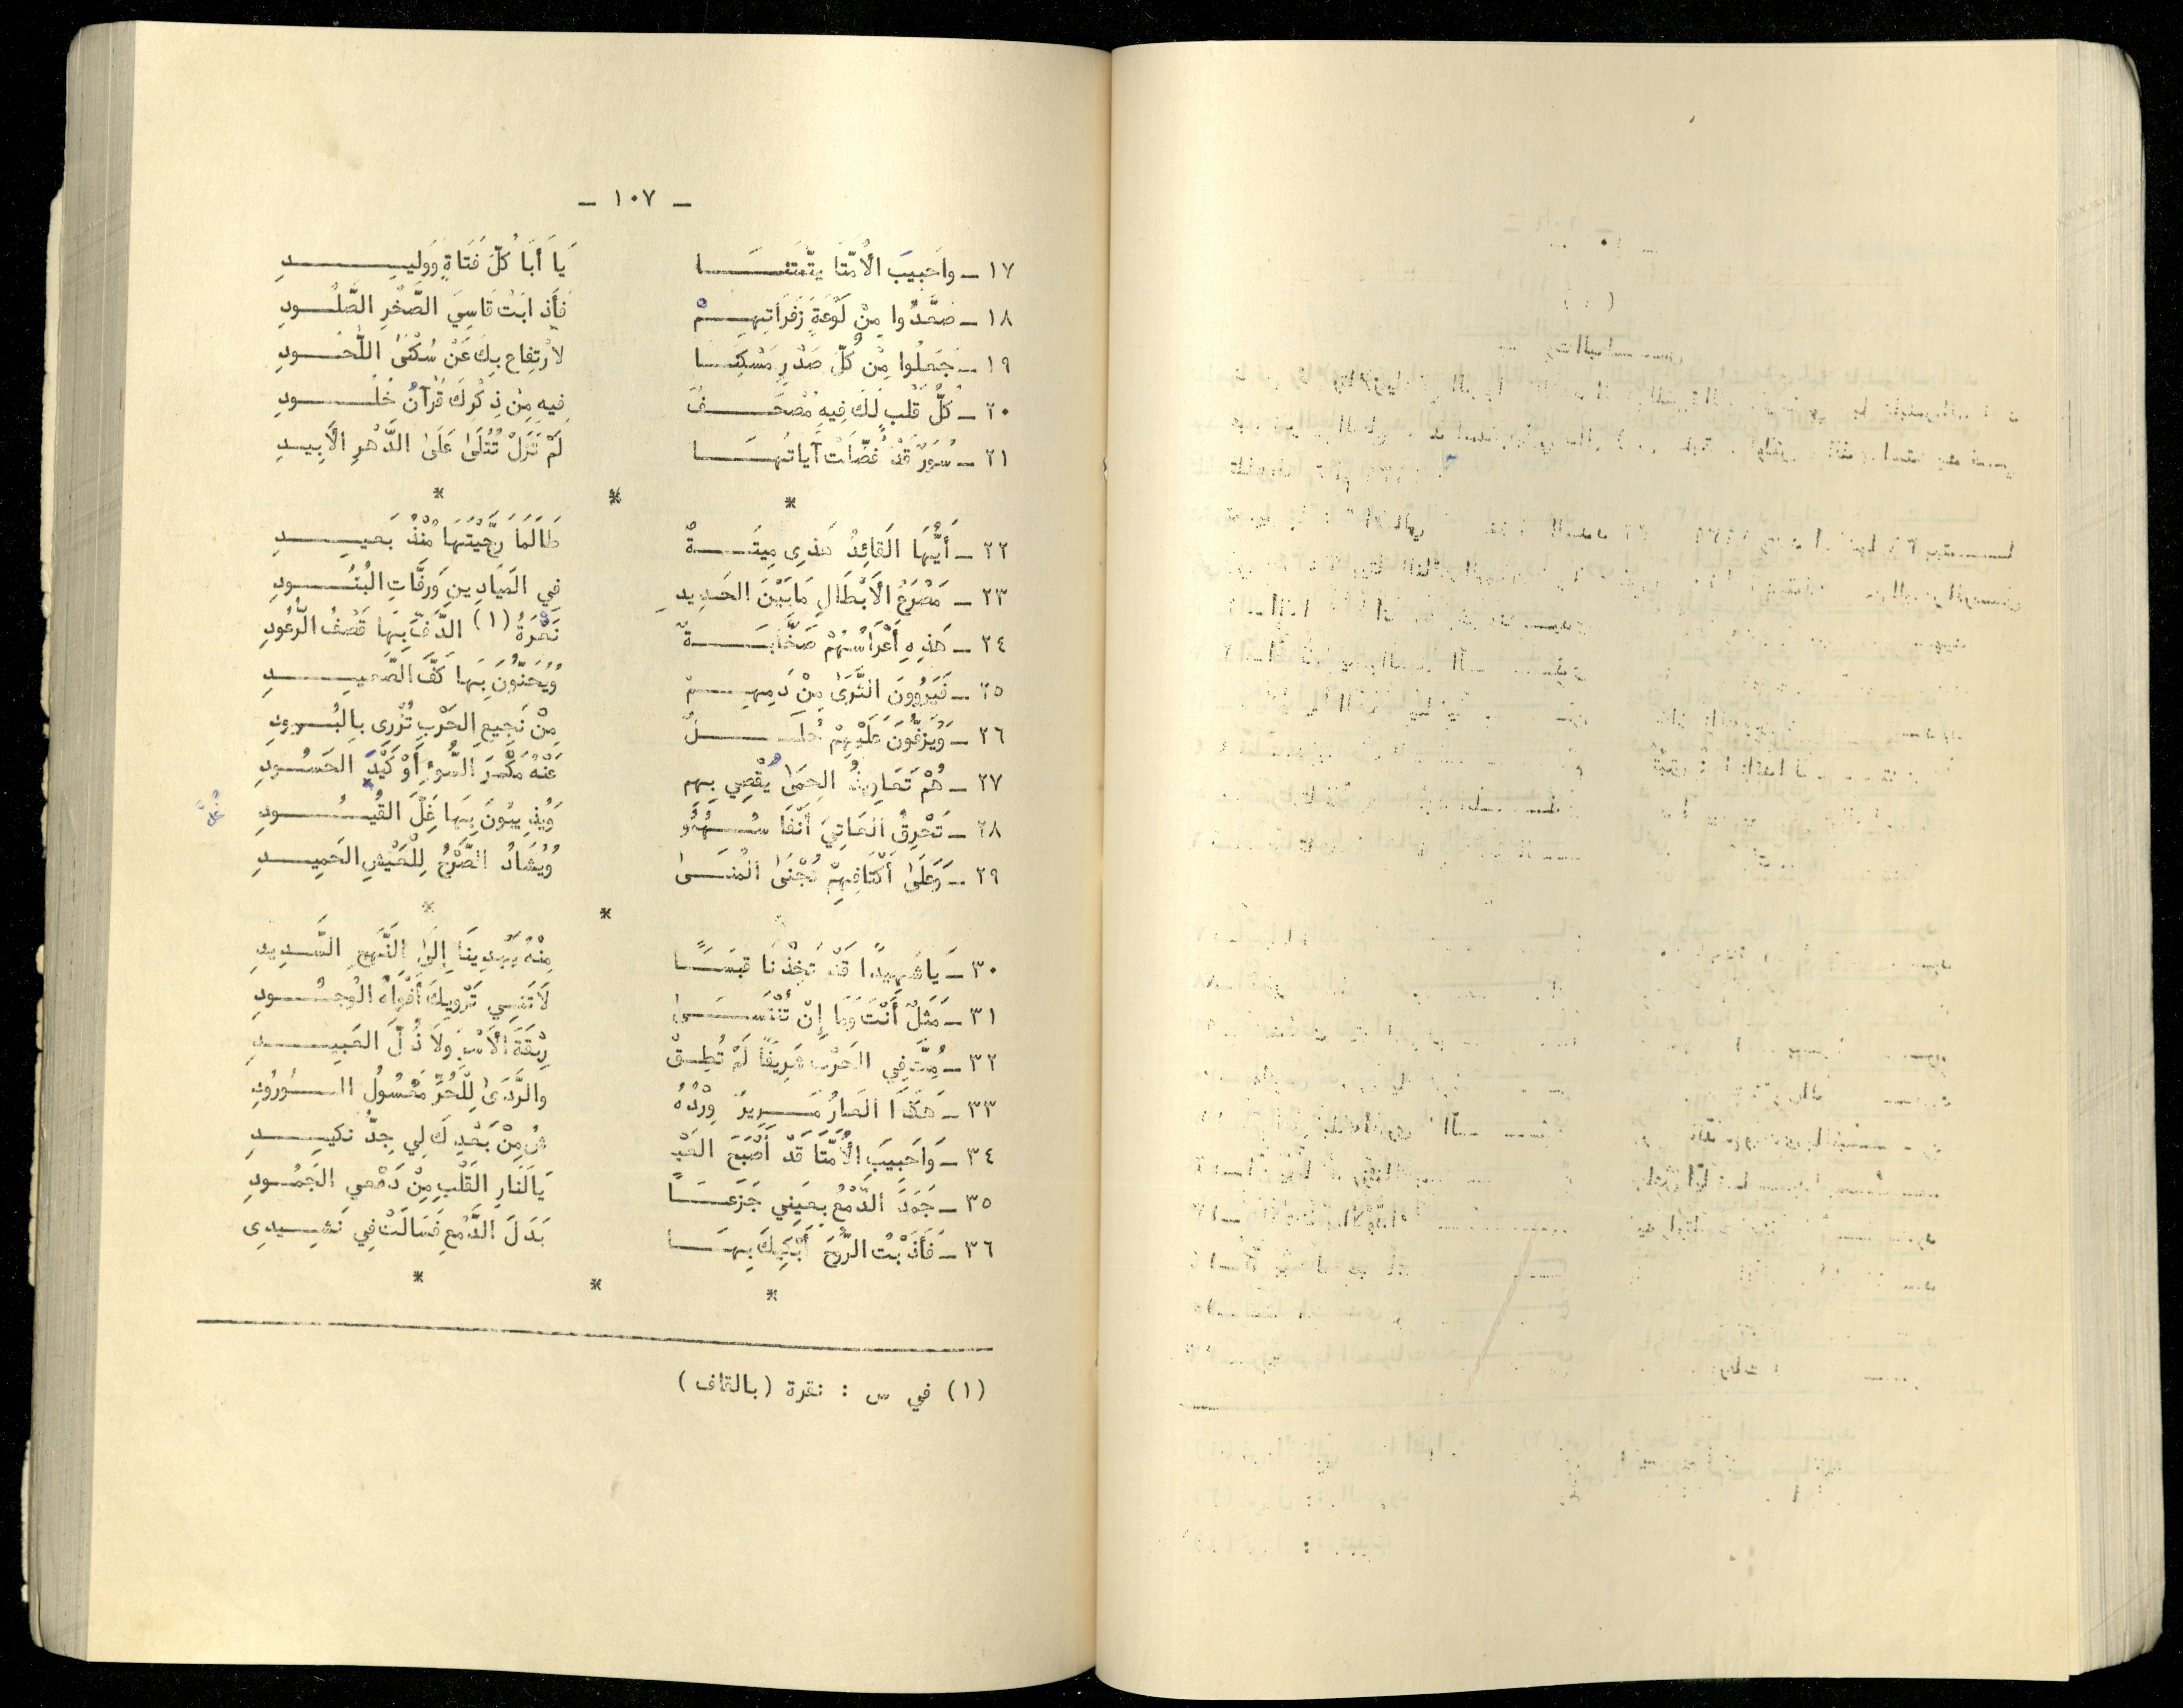 - ١٠٧ -
١٧ - واحَبِيبَ الأُمَّتَا يتَّمتنَا يَا أَبَا كُلّ فَتَاةٍ وَوَلِيدِ
١٨ - صَعَّدُوا مِنْ لَوْعَةٍ زَفَرَاتِهِمْ فَأَذابَتْ قَاسِيَ الصَّخْرِ الصَّلُودِ
١٩ - جَعَلُوا مِنْ كُلّ صَدْرٍ مَسْكِنَا لارْتِفاعٍ بِكَ عَنْ سُكْنَىٰ اللُّحُودِ
٢٠ - كُلُّ قَلْبٍ لَكَ فِيهِ مُصْحَفٌ فِيهِ مِنْ ذِكْرِكَ قُرْآنُ خُلُودِ
٢١ - سُوَرٌ قَدْ فُصِّلَتْ آيَاتُهَا لَمْ تَزَلْ تُتْلَىٰ عَلَىٰ الدَّهْرِ الأَبِيدِ
* * *
٢٢ - أَيُّهَا القَائِدُ هَذِى مِيتَةٌ طَالَمَا رَجَّيْتَهَا مُنْذُ بَعيدِ
٢٣ - مَصْرَعُ الأَبْطَالِ مَابَيْنَ الحَدِيدِ فِي المَيَادِينِ وَرفَّاتِ البُنُودِ
٢٤ - هَذِهِ أَعْرَاسُهُمْ صَخَّابَةٌ نَعْرَةُ (١) الدَّفّ بِهَا قَصْفُ الرُّعُودِ
٢٥ - فَيَرْوُونَ الثَّرَىٰ مِنْ دَمِهِمْ وُيُحَنّونَ بِهَا كَفَّ الصَّعِيدِ
٢٦ - وَيَزفُّونَ عَلَيْهِمْ حُلَلٌ مِنْ نَجِيعِ الحَرْبِ تُزْرِى بالبُرودِ
٢٧ - هُمْ تَعَاوِيذُ الحِمَىٰ يُقْصِي بِهِم عَنْهُ مَكْرَ السُّوءِ أَوْ كَيْدَ الحَسُودِ
٢٨ - تَحْرِقُ العَاتِيَ أَنْفَاسُهُمُو وَيُذِيبُونَ بِهَا غِلَّ القُيُودِ
غُلّ
٢٩ - وَعَلَىٰ أَكْتَافِهِمْ تُجْنَىٰ المُنَىٰ وُيُشَادُ الصَّرْحُ لِلْعَيْشِ الحَمِيدِ
* * *
٣٠ - يَا شَهِيدًا قَدْ تَخِذْنَا قبَسًا مِنْهُ يَهْدِينَا إِلَىٰ النَّهْجِ السَّدِيدِ
٣١ - مَثَلٌ أَنْتَ وَمَا إِنْ تُنْسَىٰ لَا تَنِي تَرْوِيكَ أَفْوَاهُ الوُجُودِ
٣٢ - مُتَّ فِي الحَرْبِ شَرِيفًا لَمْ تُطِقْ رِبْقَةَ الأَسْرِ وَلَا ذُلَّ العَبِيدِ
٣٣ - هَكَذَا العَارُ مَرِيرٌ وِرْدُهُ والرَّدَىٰ لِلْحُرِّ مَعْسُولُ الوُرُودِ
٣٤ - وَاحَبِيبَ الأُمَّتَا قَدْ أَصْبَحَ العَيْـ شُ مِنْ بَعْدِكَ لِي جِدَّ نَكِيدِ
٣٥ - جَمَدَ الدَّمْعُ بِعَيْنِي جَزَعًا يَالَنَارِ القَلْبِ مِنْ دَمْعِي الجَمُودِ
٣٦ - فَأَذَبْتُ الرُّوحَ أَبْكِيكَ بِهَا بَدَلَ الدَّمْعِ فَسَالَتْ فِي نَشِيدِى
* * *
(١) في س : نقرة (بالقاف)